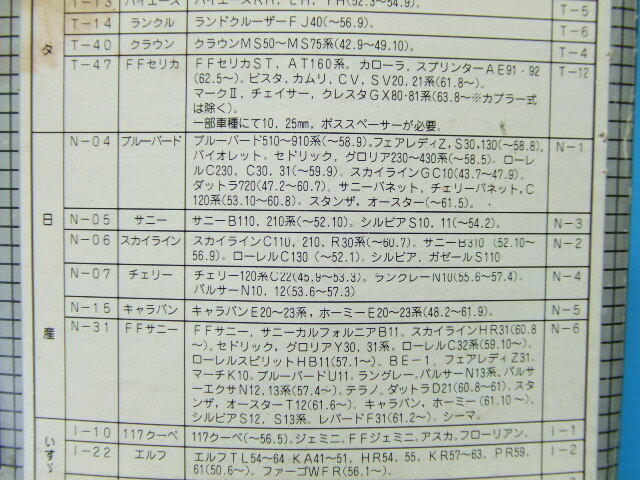 T-13 ハイエース T-5
T-14 ランクル ランドクルーザーFJ40(～56.9)。 T-6
T-40 クラウン クラウンMS50～MS75系(42.9～49.10)。 T-4
T-47 FFセリカ FFセリカST, AT160系。カローラ, スプリンターAE91・92 T-12
(62.5～)。ビスタ, カムリ, CV, SV20, 21系(61.8～)。
マークII, チェイサー, クレスタGX80・81系(63.8～※カプラー式
は除く)。
一部車種にて10, 25mm, ボススペーサーが必要。
タ
N-04 ブルーバード ブルーバード510～910系(～58.9)。フェアレディZ, S30,130(～58.8)。 N-1
バイオレット。セドリック, グロリア230～430系(～58.5)。ローレ
ルC230, C30, 31(～59.9)。スカイラインGC10(43.7～47.9)。
ダットラ720(47.2～60.7)。サニーバネット, チェリーバネット, C
120系(53.10～60.8)。スタンザ, オースター(～61.5)。
N-05 サニー サニーB110, 210系(～52.10)。シルビアS10, 11(～54.2)。 N-3
N-06 スカイライン スカイラインC110, 210, R30系(～60.7)。サニーB310 (52.10～ N-2
56.9)。ローレルC130 (～52.1)。シルビア, ガゼールS110
N-07 チェリー チェリー120系C22(45.9～53.3)。ラングレーN10(55.6～57.4)。 N-4
パルサーN10, 12(53.6～57.3)
N-15 キャラバン キャラバンE20～23系, ホーミーE20～23系(48.2～61.9)。 N-5
N-31 FFサニー FFサニー, サニーカルフォルニアB11。スカイラインHR31(60.8 N-6
～)。セドリック, グロリアY30, 31系。ローレルC32系(59.10～)。
ローレルスピリットHB11(57.1～)。BE-1。フェアレディZ31。
マーチK10。ブルーバードU11。ラングレー。パルサーN13系, パルサ
ーエクサN12,13系(57.4～)。テラノ。ダットラD21(60.8～61)。スタ
ンザ, オースターT12(61.6～)。キャラバン, ホーミー(61.10～)。
シルビアS12, S13系。レパードF31(61.2～)。シーマ。
日産
I-10 117クーペ 117クーペ(～56.5)。ジェミニ。FFジェミニ。アスカ。フローリアン。 I-1
I-22 エルフ エルフTL54～64 KA41～51, HR54, 55, KR57～63, PR59, I-2
61(50.6～)。ファーゴWFR(56.1～)。
いすゞ